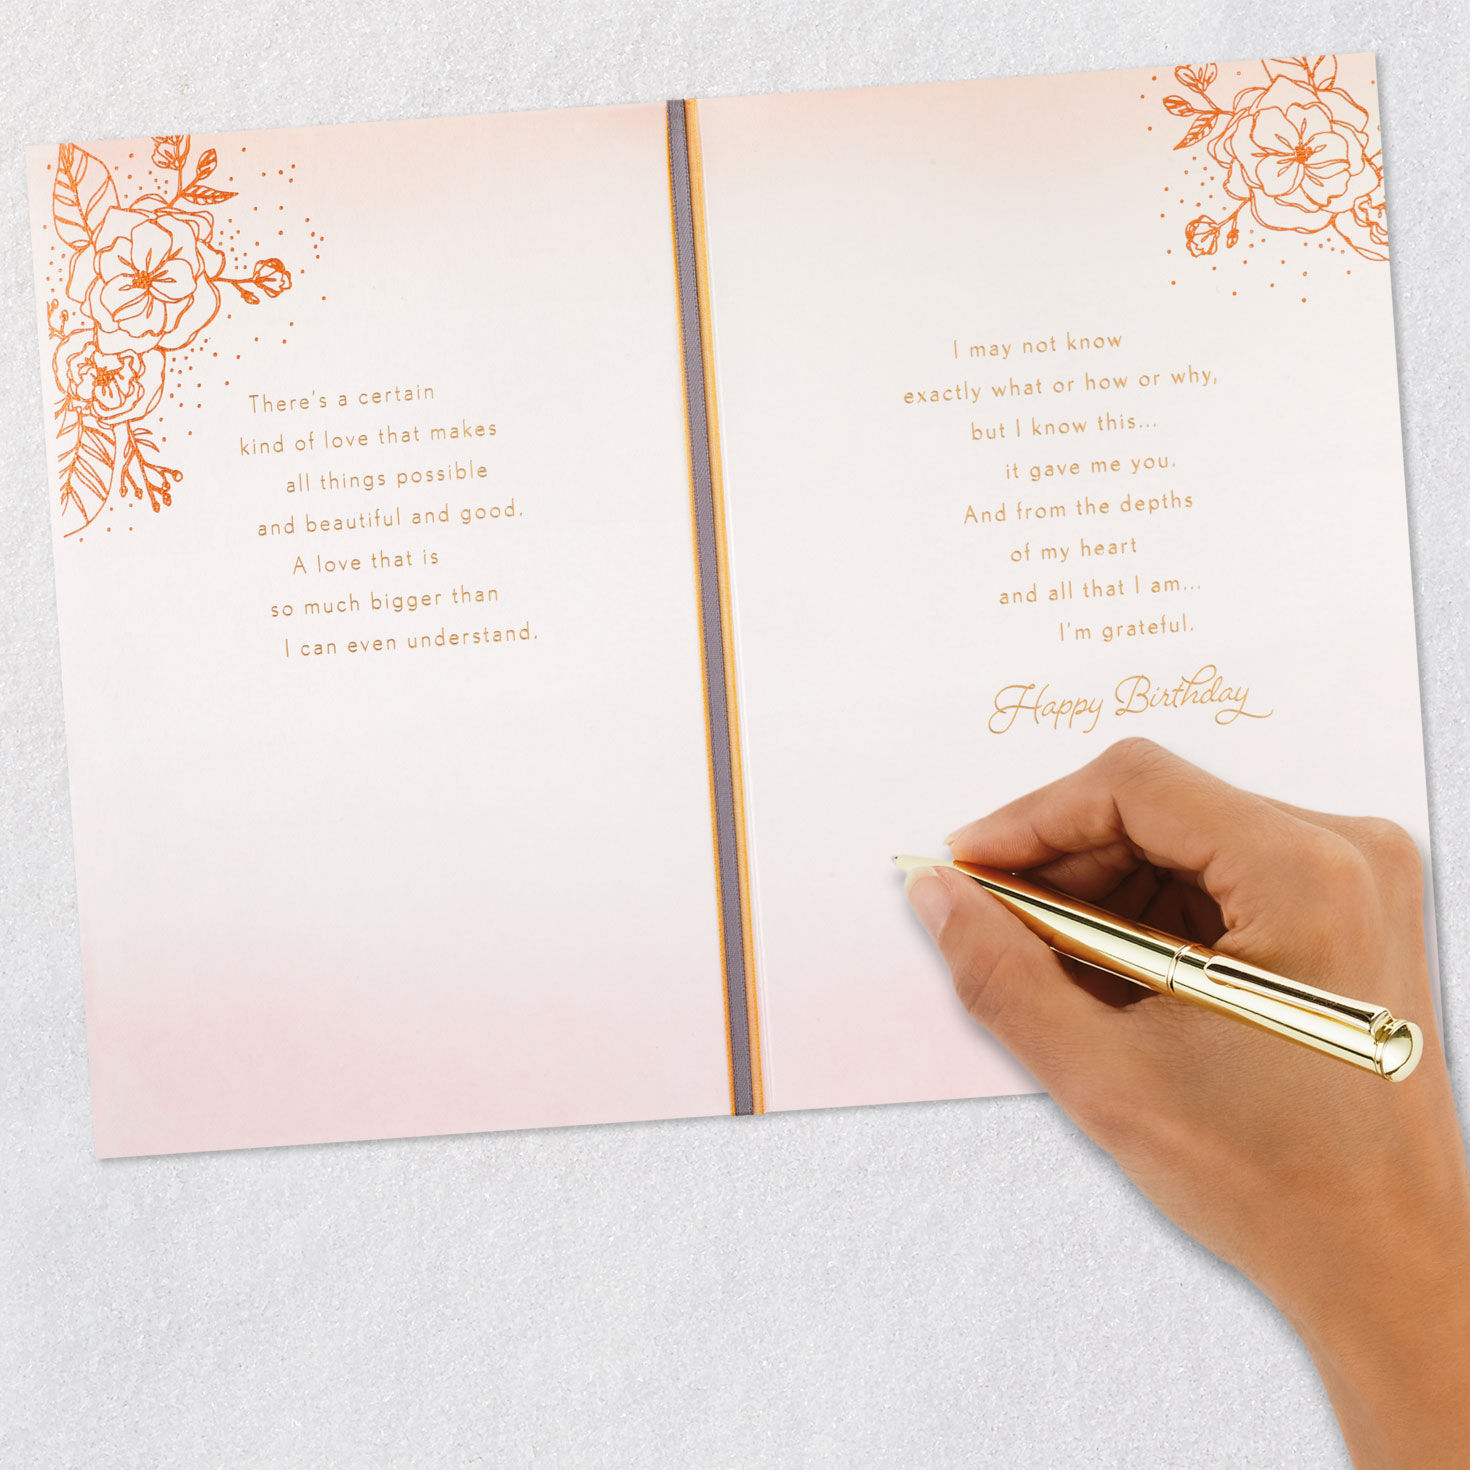 There's a certain
kind of love that makes
all things possible
and beautiful and good.
A love that is
so much bigger than
I can even understand.
I may not know
exactly what or how or why,
but I know this...
it gave me you.
And from the depths
of my heart
and all that I am...
I'm grateful.
Happy Birthday